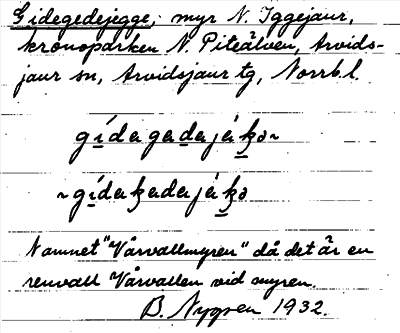 Gidegedejegge, myr N. Iggejaur,
kronoparken N. Piteälven, Arvids-
jaur sn, Arvidsjaur tg, Norrb. l.
gídagadajáḱə~
~gídaḱadajáḱə
Namnet "Vårvallmyren" då det är en
renvall Vårvallen vid myren.
B. Nygren 1932.